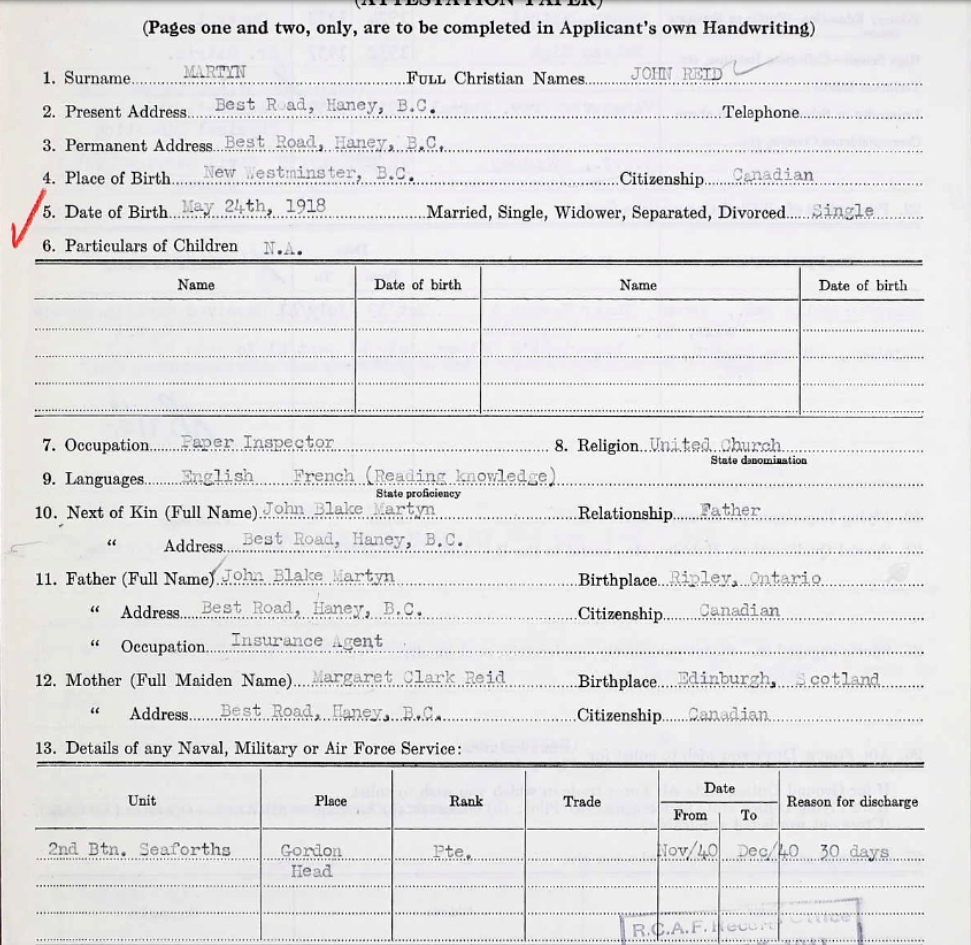 (ATTESTATION PAPER)
(Pages one and two, only, are to be completed in Applicant's own Handwriting)
1. Surname MARTYN FULL Christian Names JOHN REID
2. Present Address Best Road, Haney, B.C. Telephone
3. Permanent Address Best Road, Haney, B.C.
4. Place of Birth New Westminster, B.C. Citizenship Canadian
5. Date of Birth May 24th, 1918 Married, Single, Widower, Separated, Divorced Single
6. Particulars of Children N.A.
Name Date of birth Name Date of birth
7. Occupation Paper Inspector 8. Religion United Church
State denomination
9. Languages English French (Reading knowledge)
State proficiency
10. Next of Kin (Full Name) John Blake Martyn Relationship Father
" Address Best Road, Haney, B.C.
11. Father (Full Name) John Blake Martyn Birthplace Ripley, Ontario
" Address Best Road, Haney, B.C. Citizenship Canadian
" Occupation Insurance Agent
12. Mother (Full Maiden Name) Margaret Clark Reid Birthplace Edinburgh, Scotland
" Address Best Road, Haney, B.C. Citizenship Canadian
13. Details of any Naval, Military or Air Force Service:
Unit Place Rank Trade Date Reason for discharge
From To
2nd Btn. Seaforths Gordon Pte. Nov/40 Dec/40 30 days
Head
R.C.A.F. Record Office